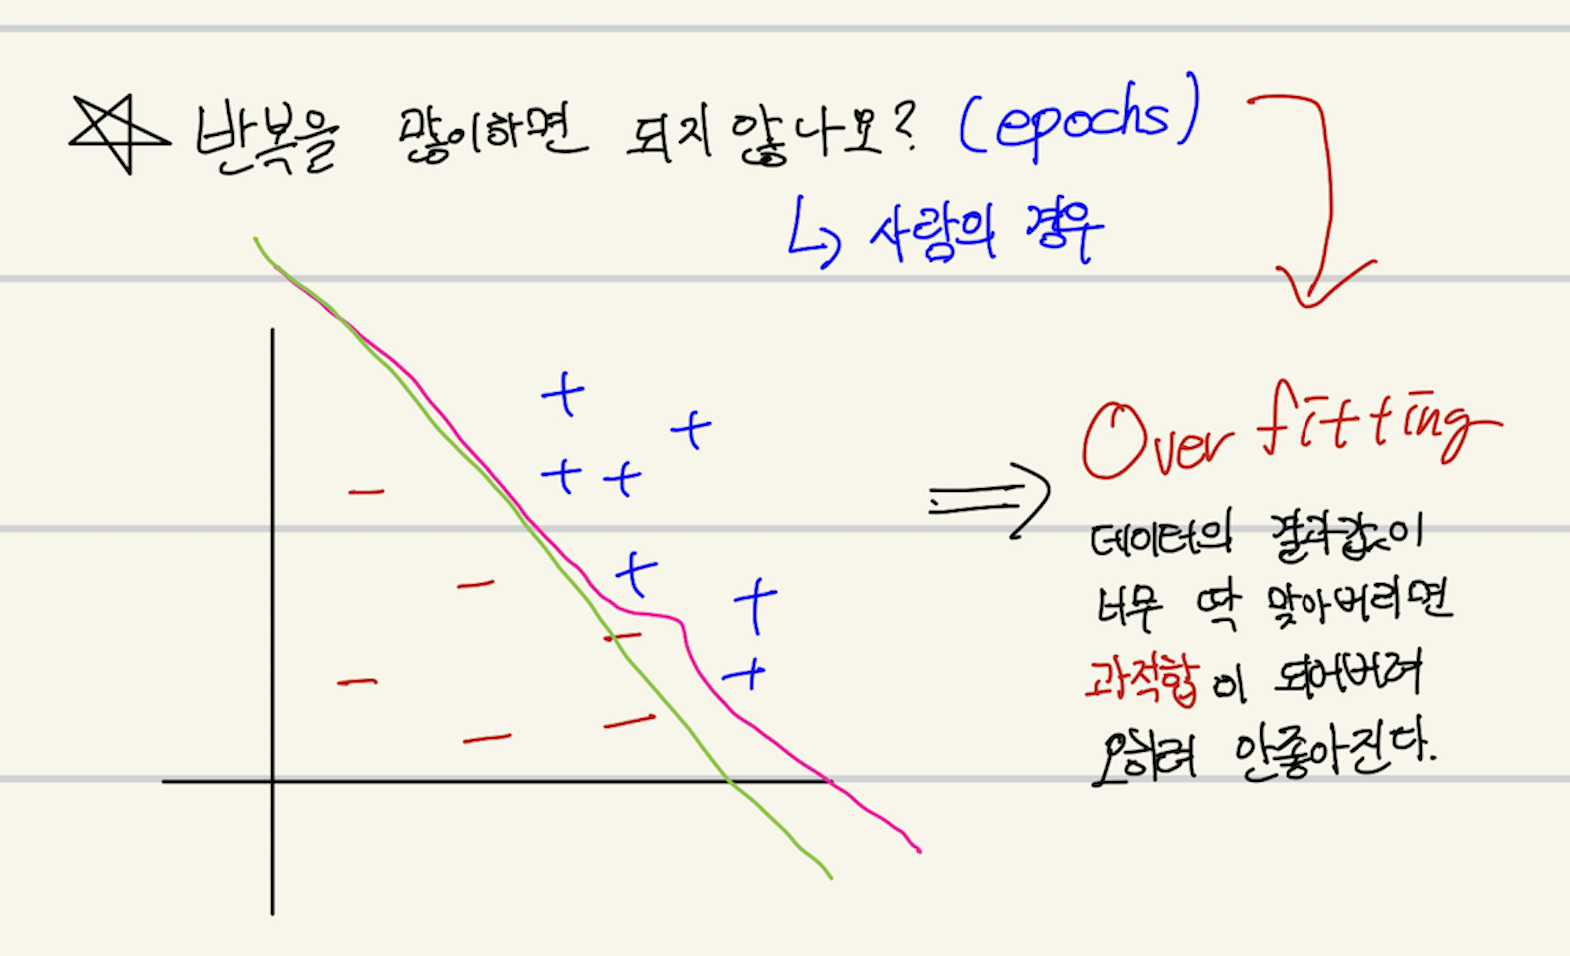 반복을 많이하면 되지 않나요? (epochs)
↳ 사람의 경우
Overfitting
데이터의 결과값이
너무 딱 맞아버리면
과적합이 되어버려
오히려 안좋아진다.